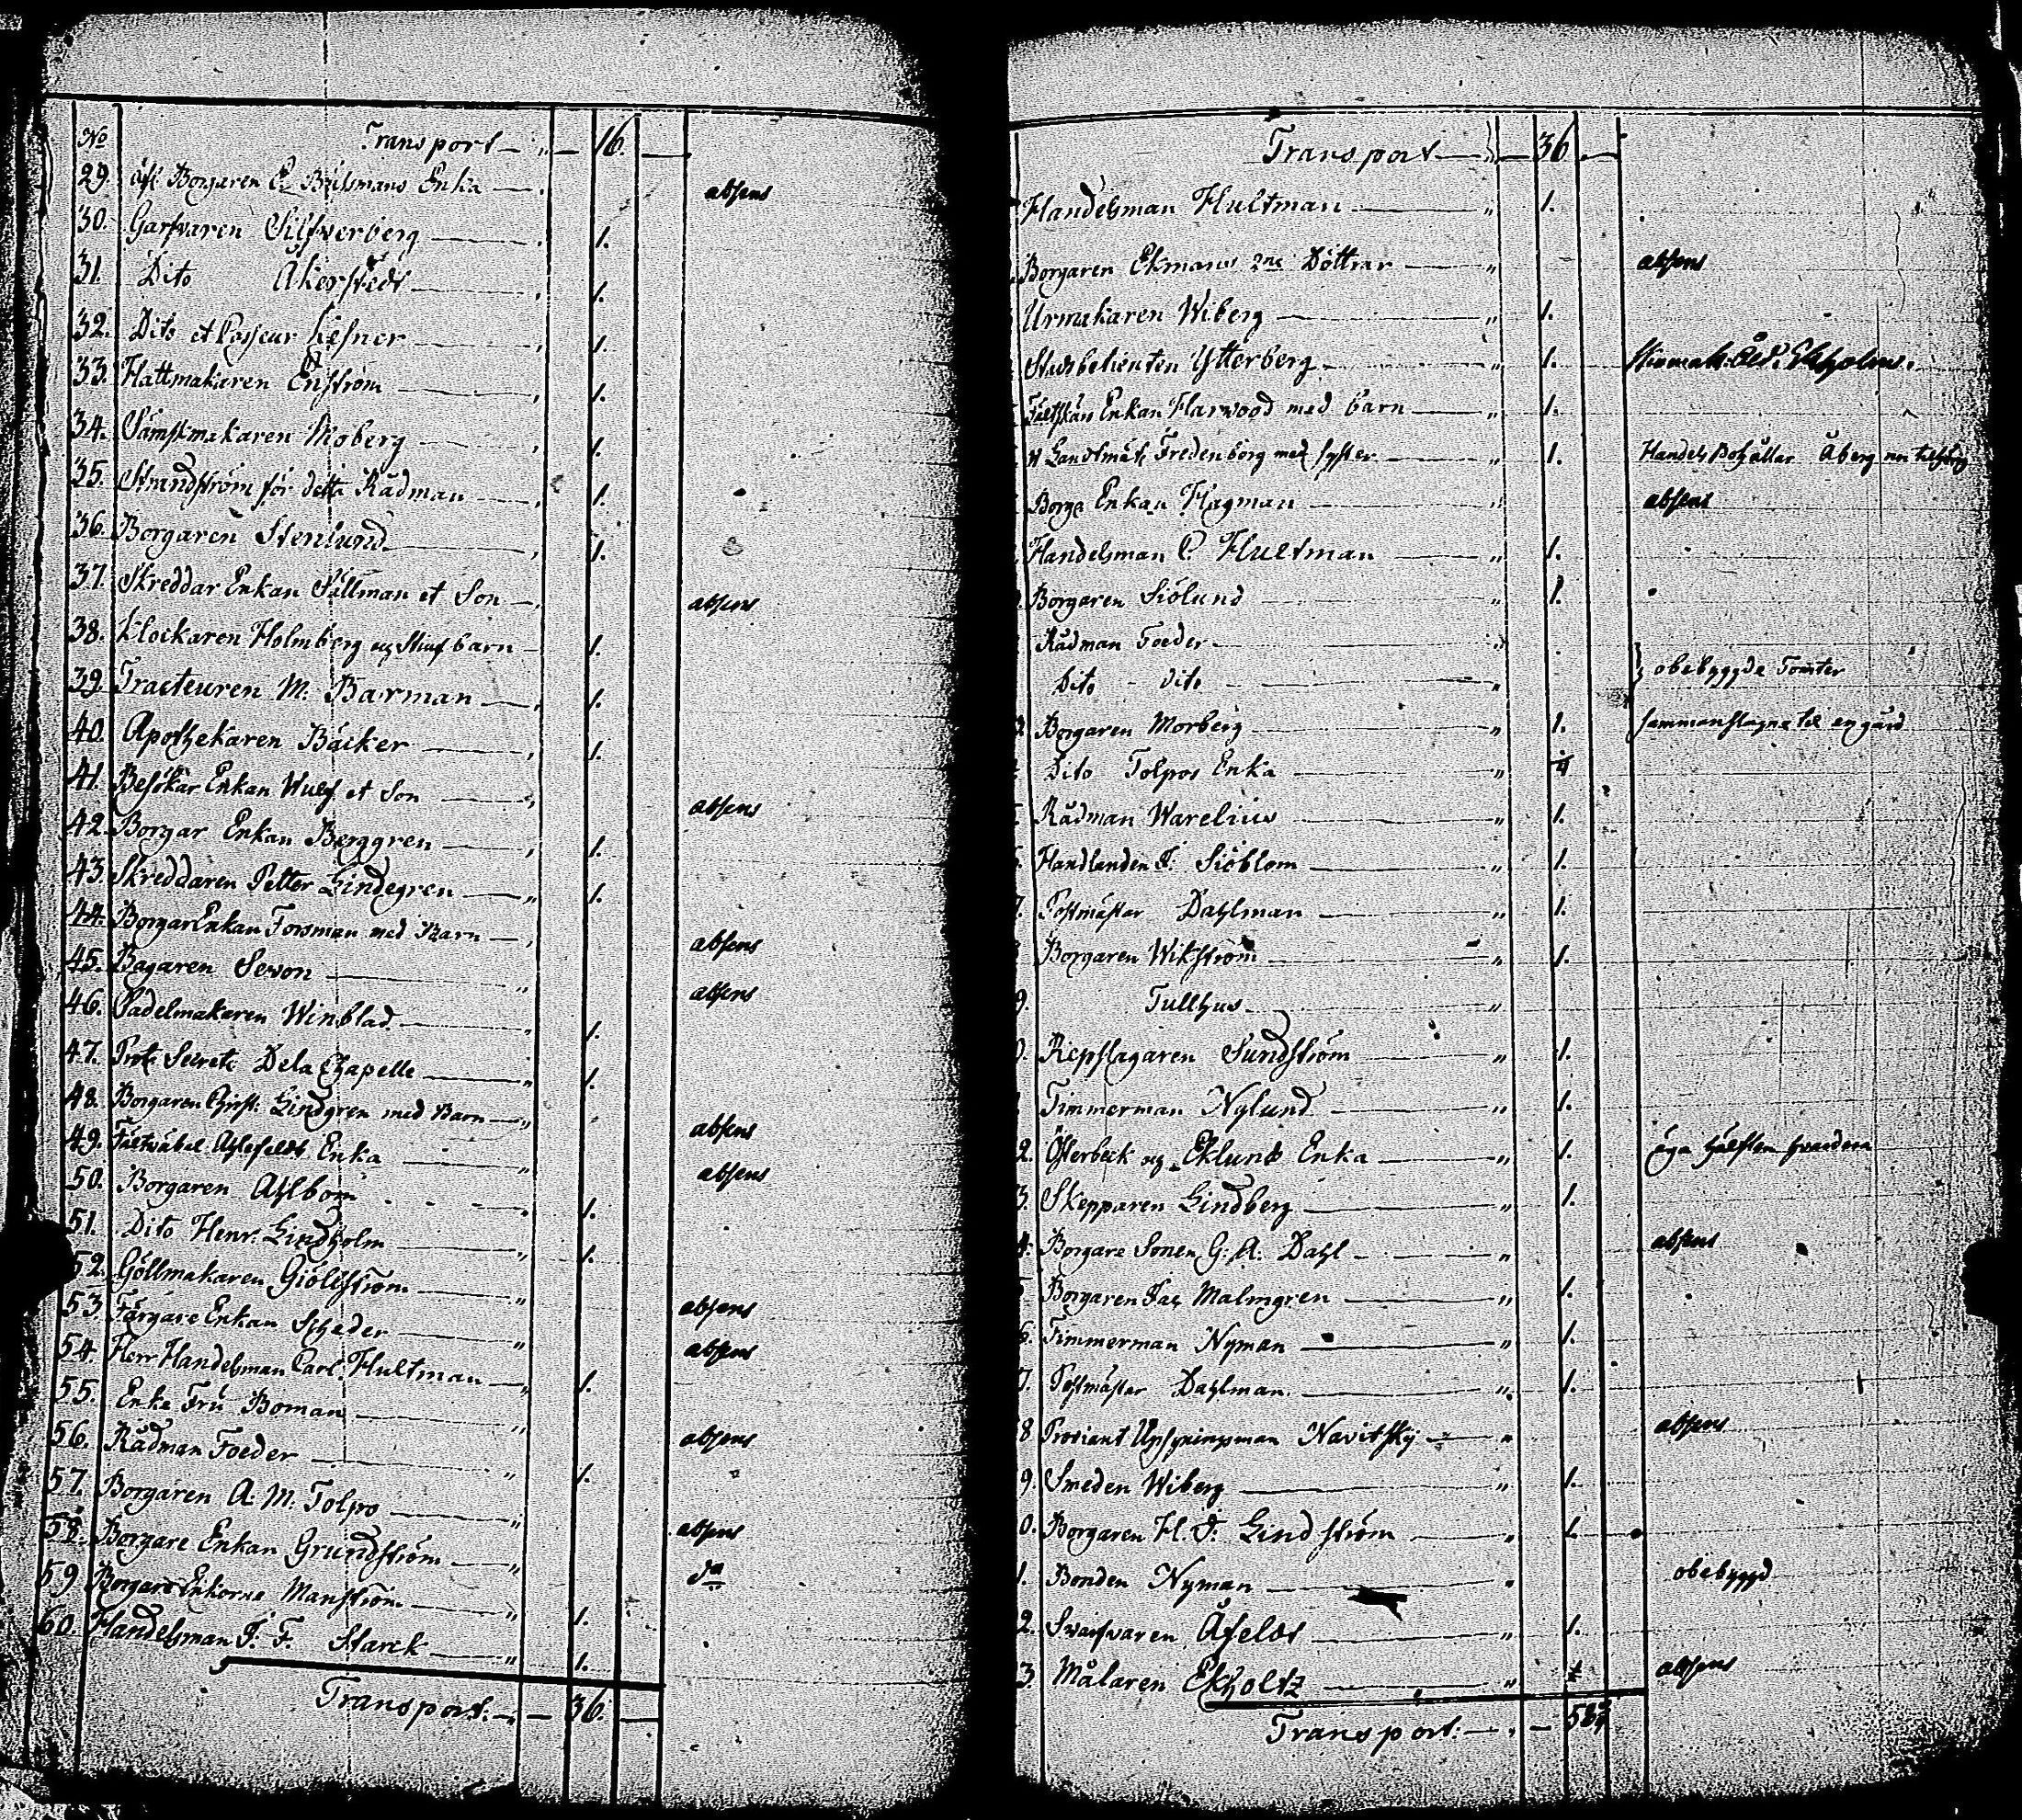 No Transport — „ — 16. —
29. Borgaren Enka — absens
30. Garfvaren Silfverberg — 1.
31. Dito Åkerstedt — 1.
32. Dito et Lefner — 1.
33. Hattmakaren Enström — 1.
34. Sämskmakaren Moberg — 1.
35. Strandström för detta Rådman — 1.
36. Borgaren Stenlund — 1.
37. Skreddar Enkan Sällman et Son — absens
38. Klockaren Holmberg och barn — 1.
39. Tracteuren M. Barman — 1.
40. Apothekaren Bäcker — 1.
41. Besökar Enkan Wulf et Son — absens
42. Borgar Enkan Berggren — 1.
43. Skreddaren Petter Lindegren — „ 1.
44. Borgar Enkan Forsman med Barn — absens
45. Bagaren Sevon — „ absens
46. Sadelmakaren Winblad — 1.
47. Prot: Secret: De la Chapelle — „ 1.
48. Borgaren Christ: Lindgren med Barn — „ absens
49. Enka — „ absens
50. Borgaren Ahlbom 1.
51. Dito Henr. Lindholm — „ 1.
52. Göllmakaren — „ absens
53. Färgare Enkan Scheder — „ absens
54. Herr Handelsman Carl Hultman — „ 1.
55. Enke Fru Boman — „ absens
56. Rådman Foeder — „ 1.
57. Borgaren A. M. Tolpo — „ absens
58. Borgare Enkan Grundström — „ do
59 Borgare Enkorne Manström — „ 1.
60. Handelsman J. F. Starck — „ 1.
Transport. — „ — 36. —
Transport — „ — 36 —
Handelsman Hultman — „ 1.
Borgaren Ekmans 2ne Döttrar — „ absens
Urmakaren Wiberg — „ 1.
Stadsbetienten Ytterberg — „ 1.
Enkan Harwood med barn — „ 1.
Landtmät: Fredenborg med syster — „ 1. Handels Åberg
Borga Enkan Hagman — „ absens
Handelsman C. Hultman — „ 1.
Borgaren Siölund — „ 1.
Rådman Foeder — „
Dito – dito — „ obebyggde Tomter
Borgaren Morberg — „ 1. sammanslagne til en gård
Dito Tolpos Enka — „
Rådman Warelius — „ 1.
Handlanden J. Siöblom — „ 1.
7. Postmästar Dahlman — „ 1.
Borgaren Wikström — „ 1.
9. Tullhus — „
0. Riepslagaren Sundström — „ 1.
Timmerman Nylund — „ 1.
2. Österbeck och Eklunds Enka — „ 1. äga hälften hvardera
3. Skepparen Lindberg — „ 1.
4. Borgare Sonen G. A. Dahl — „ absens
Borgaren Jac Malmgren — „ 1.
6. Timmerman Nyman — „ 1.
7. Postmästar Dahlman. — „ 1.
8 Proviant Navitskij — „ absens
9. Smeden Wiberg — „ 1.
0. Borgaren H. J. Lindström — „ 1.
1. Bonden Nyman — „ obebyggd
2. Svarfvaren — „ 1.
3. Målaren Ekholtz — „ absens
Transport. — „ —